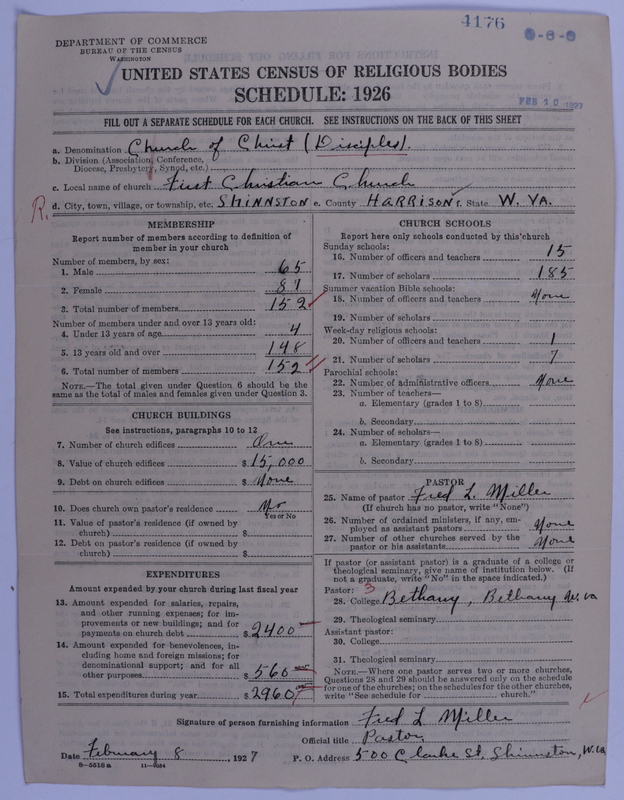 4176
8-6-8
DEPARTMENT OF COMMERCE
BUREAU OF THE CENSUS
WASHINGTON
UNITED STATES CENSUS OF RELIGIOUS BODIES
SCHEDULE: 1926
FEB 10 1927
FILL OUT A SEPARATE SCHEDULE FOR EACH CHURCH. SEE INSTRUCTIONS ON THE BACK OF THIS SHEET
a. Denomination Church of Christ (Disciples).
b. Division (Association, Conference,
Diocese, Presbytery, Synod, etc.)
c. Local name of church First Christian Church
R. d. City, town, village, or township, etc. SHINNSTON e. County HARRISON f. State W. VA.
MEMBERSHIP
Report number of members according to definition of
member in your church
Number of members, by sex:
1. Male 65
2. Female 87
3. Total number of members 152
Number of members under and over 13 years old:
4. Under 13 years of age 4
5. 13 years old and over 148
6. Total number of members 152
NOTE.—The total given under Question 6 should be the
same as the total of males and females given under Question 3.
CHURCH BUILDINGS
See instructions, paragraphs 10 to 12
7. Number of church edifices One
8. Value of church edifices $ 15,000
9. Debt on church edifices $ None
10. Does church own pastor's residence No
Yes or No
11. Value of pastor's residence (if owned by
church) $
12. Debt on pastor's residence (if owned by
church) $
EXPENDITURES
Amount expended by your church during last fiscal year
13. Amount expended for salaries, repairs,
and other running expenses; for im-
provements or new buildings; and for
payments on church debt $ 2400
14. Amount expended for benevolences, in-
cluding home and foreign missions; for
denominational support; and for all
other purposes $ 560
15. Total expenditures during year $ 2960
CHURCH SCHOOLS
Report here only schools conducted by this church
Sunday schools:
16. Number of officers and teachers 15
17. Number of scholars 185
Summer vacation Bible schools:
18. Number of officers and teachers None
19. Number of scholars
Week-day religious schools:
20. Number of officers and teachers 1
21. Number of scholars 7
Parochial schools:
22. Number of administrative officers None
23. Number of teachers—
a. Elementary (grades 1 to 8)
b. Secondary
24. Number of scholars—
a. Elementary (grades 1 to 8)
b. Secondary
PASTOR
25. Name of pastor Fred L. Miller
(If church has no pastor, write "None")
26. Number of ordained ministers, if any, em-
ployed as assistant pastors None
27. Number of other churches served by the
pastor or his assistants None
If pastor (or assistant pastor) is a graduate of a college or
theological seminary, give name of institution below. (If
not a graduate, write "No" in the space indicated.)
Pastor: 3
28. College Bethany, Bethany W. Va
29. Theological seminary
Assistant pastor:
30. College
31. Theological seminary
NOTE.—Where one pastor serves two or more churches,
Questions 28 and 29 should be answered only on the schedule
for one of the churches; on the schedules for the other churches,
write "See schedule for church."
Signature of person furnishing information Fred L Miller
Official title Pastor
Date February 8, 1927 P. O. Address 500 Clarke St, Shinnston, W. Va
8-5518a 11-9034